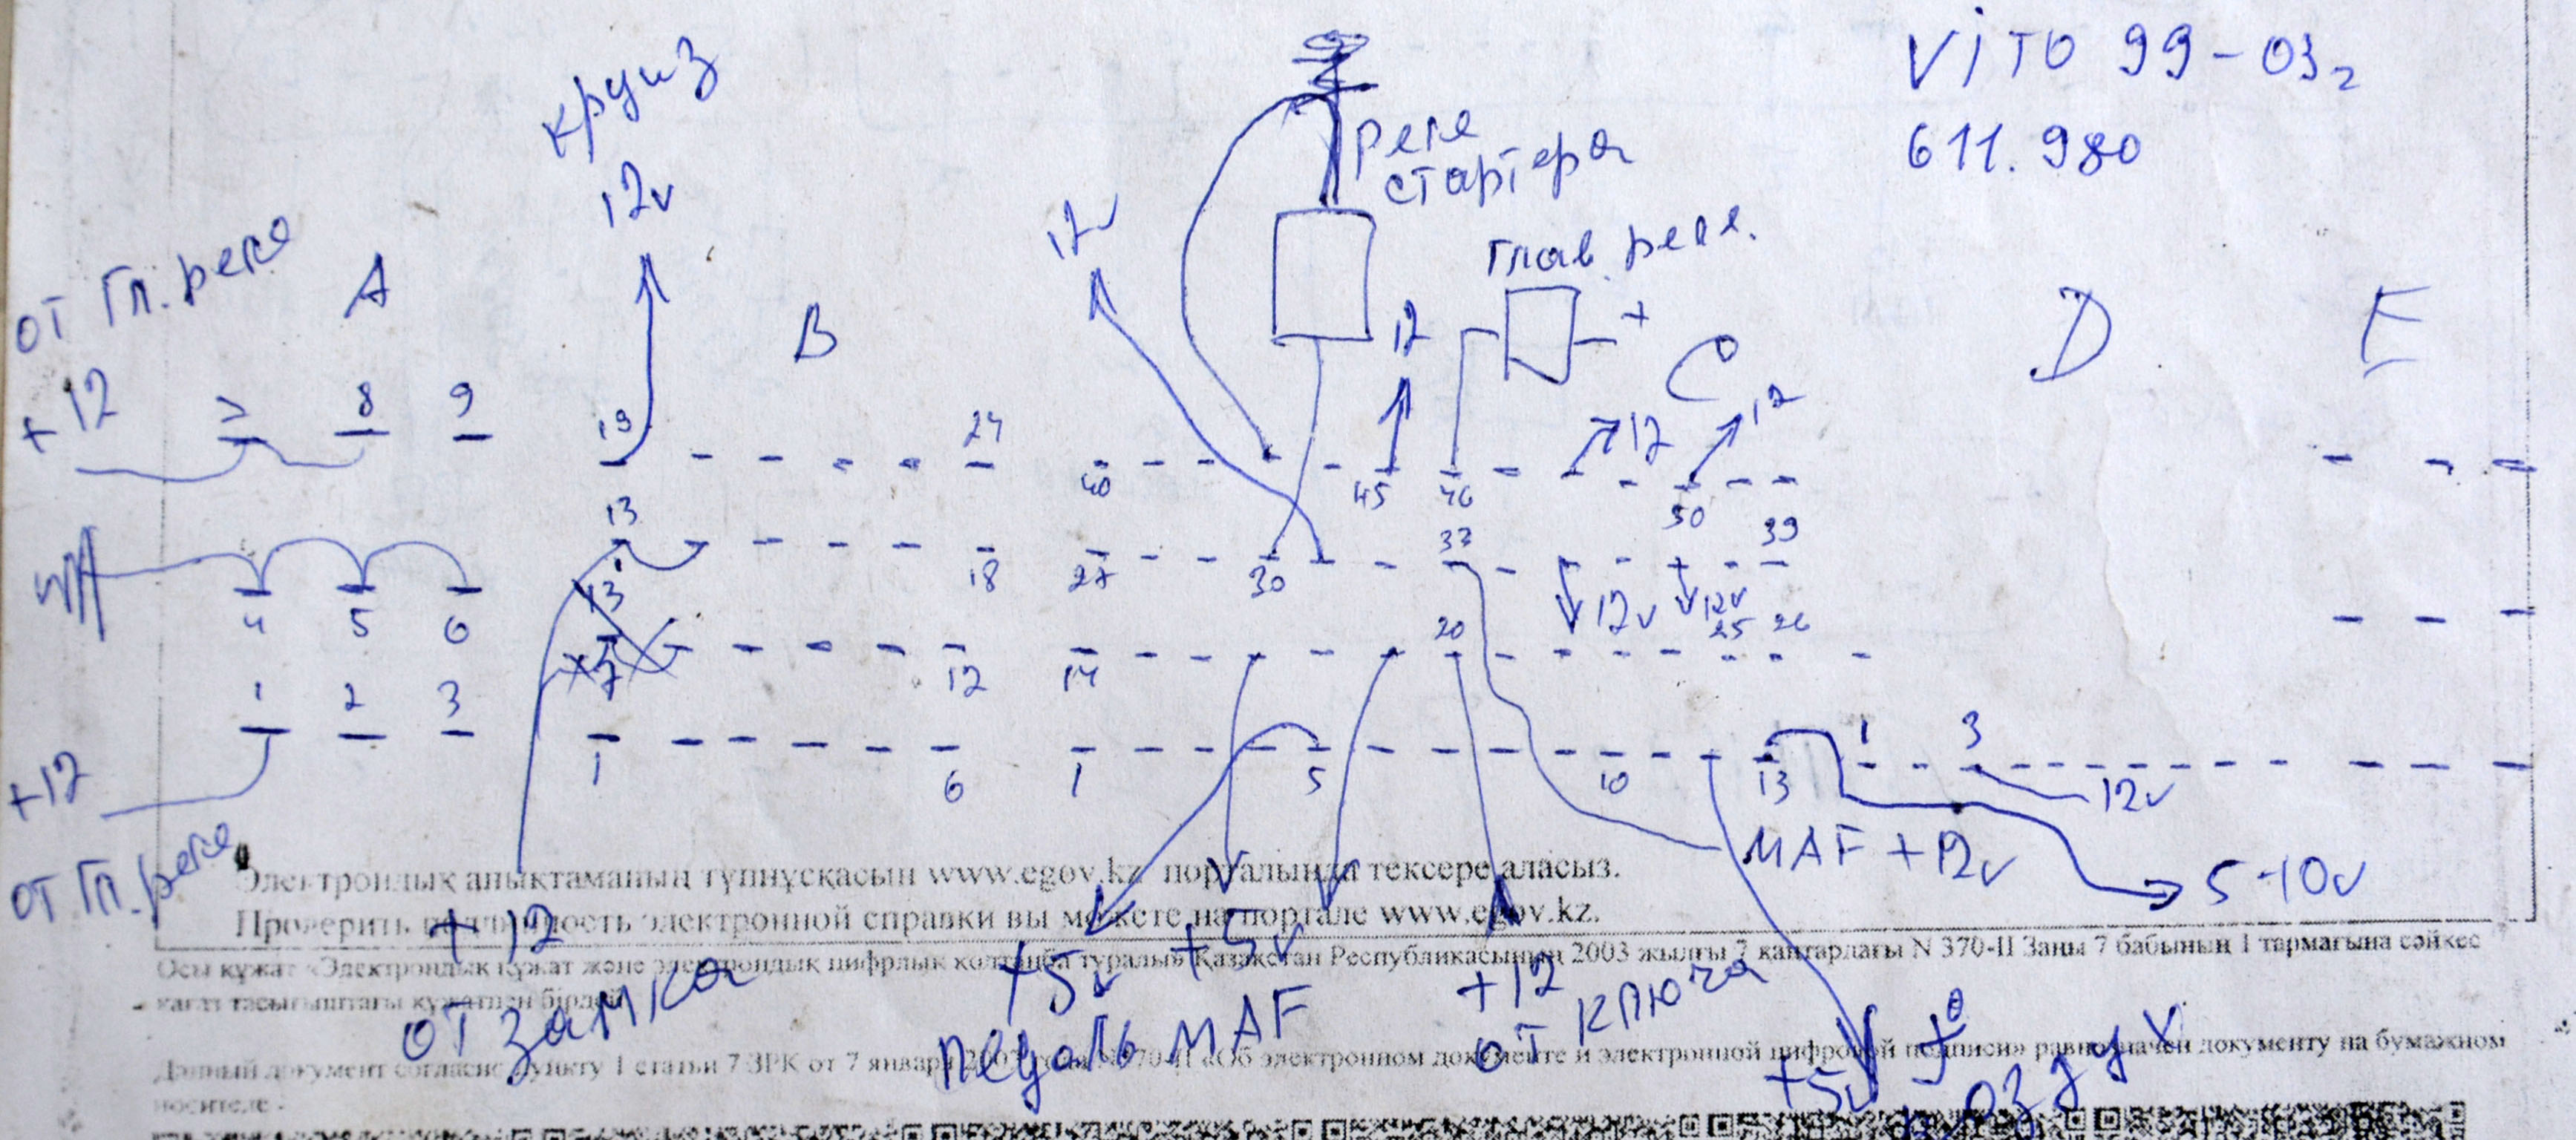 VITO 99-03г
611.980
круиз
12v
реле
стартера
12v
глав. реле.
от гл. реле
+12
A
B
C
D
E
12
+
12
12
7 8 9
19
24
40
45
46
50
13
18
27
30
33
39
4 5 6
13
7
12
14
20
12v
12v
25 26
1 2 3
1
6
1
5
10
13
1
3
12v
+12
от гл. реле
MAF +12v
5-10v
Электрондық анықтаманың түпнұсқасын www.egov.kz порталында тексере аласыз.
Проверить подлинность электронной справки вы можете на портале www.egov.kz.
Осы құжат «Электрондық құжат және электрондық цифрлық қолтаңба туралы» Қазақстан Республикасының 2003 жылғы 7 қаңтардағы N 370-II Заңы 7 бабының 1 тармағына сәйкес
қағаз тасығыштағы құжатпен бірдей
Данный документ согласно пункту 1 статьи 7 ЗРК от 7 января 2003 года N370-II «Об электронном документе и электронной цифровой подписи» равнозначен документу на бумажном
носителе.
+12
от замка
+5v
педаль
+5v
MAF
+12
от ключа
+5v
t°
воздух